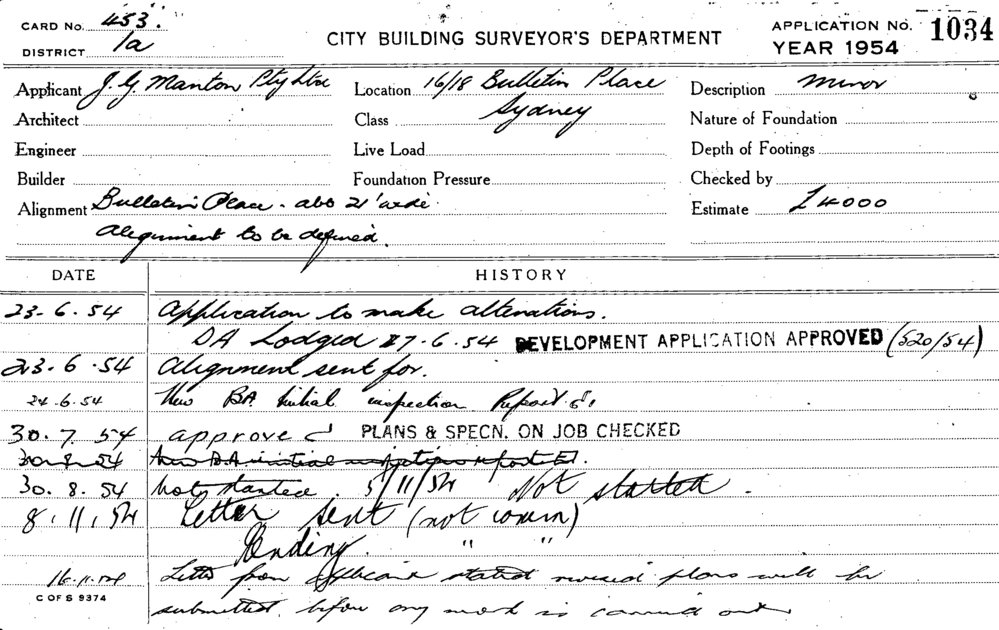 CARD No. 453.
DISTRICT 1a
CITY BUILDING SURVEYOR'S DEPARTMENT
APPLICATION No. 1034
YEAR 1954
Applicant J. G Manton Pty Ltd
Location 16/18 Bulletin Place
Sydney
Description Minor
Architect
Class
Nature of Foundation
Engineer
Live Load
Depth of Footings
Builder
Foundation Pressure
Checked by
Alignment Bulletin Place - abt 21' wide
Alignment to be defined.
Estimate £4000
DATE HISTORY
23. 6. 54 Application to make alterations.
DA Lodged 27.6.54 DEVELOPMENT APPLICATION APPROVED (520/54)
23.6.54 Alignment sent for.
24.6.54 New BA. Initial inspection Report
30.7.54 approved PLANS & SPECN. ON JOB CHECKED
30.8.54 New B.A initial inspection report
30.8.54 Not started. 5/11/54 Not started.
8.11.54 Letter sent (not comm)
Pending. " "
16.11.54 Letter from applicant stated revised plans will be
C OF S 9374
submitted before any work is carried out